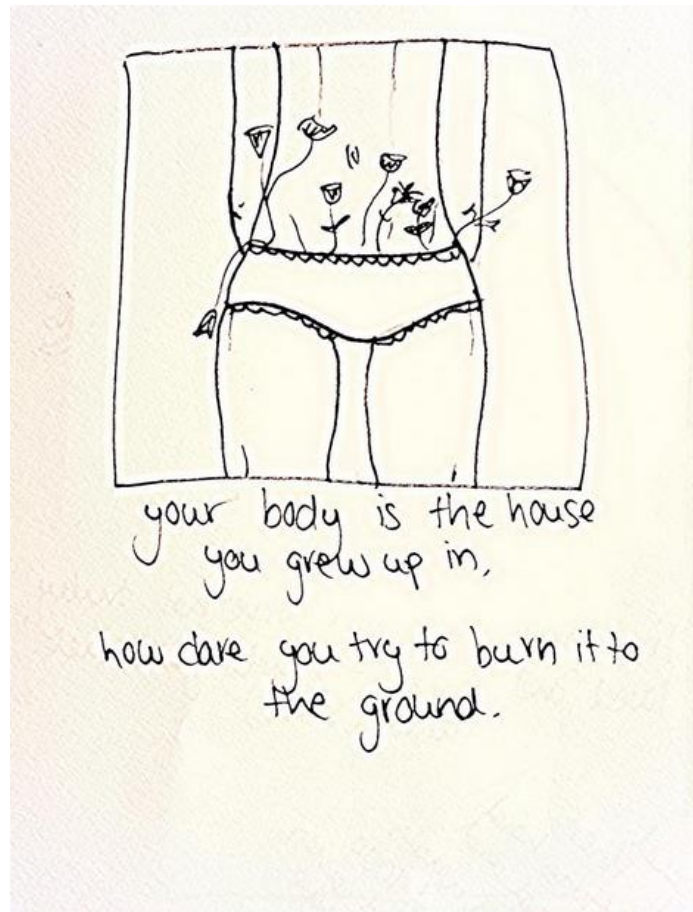 your body is the house
you grew up in,
how dare you try to burn it to
the ground.